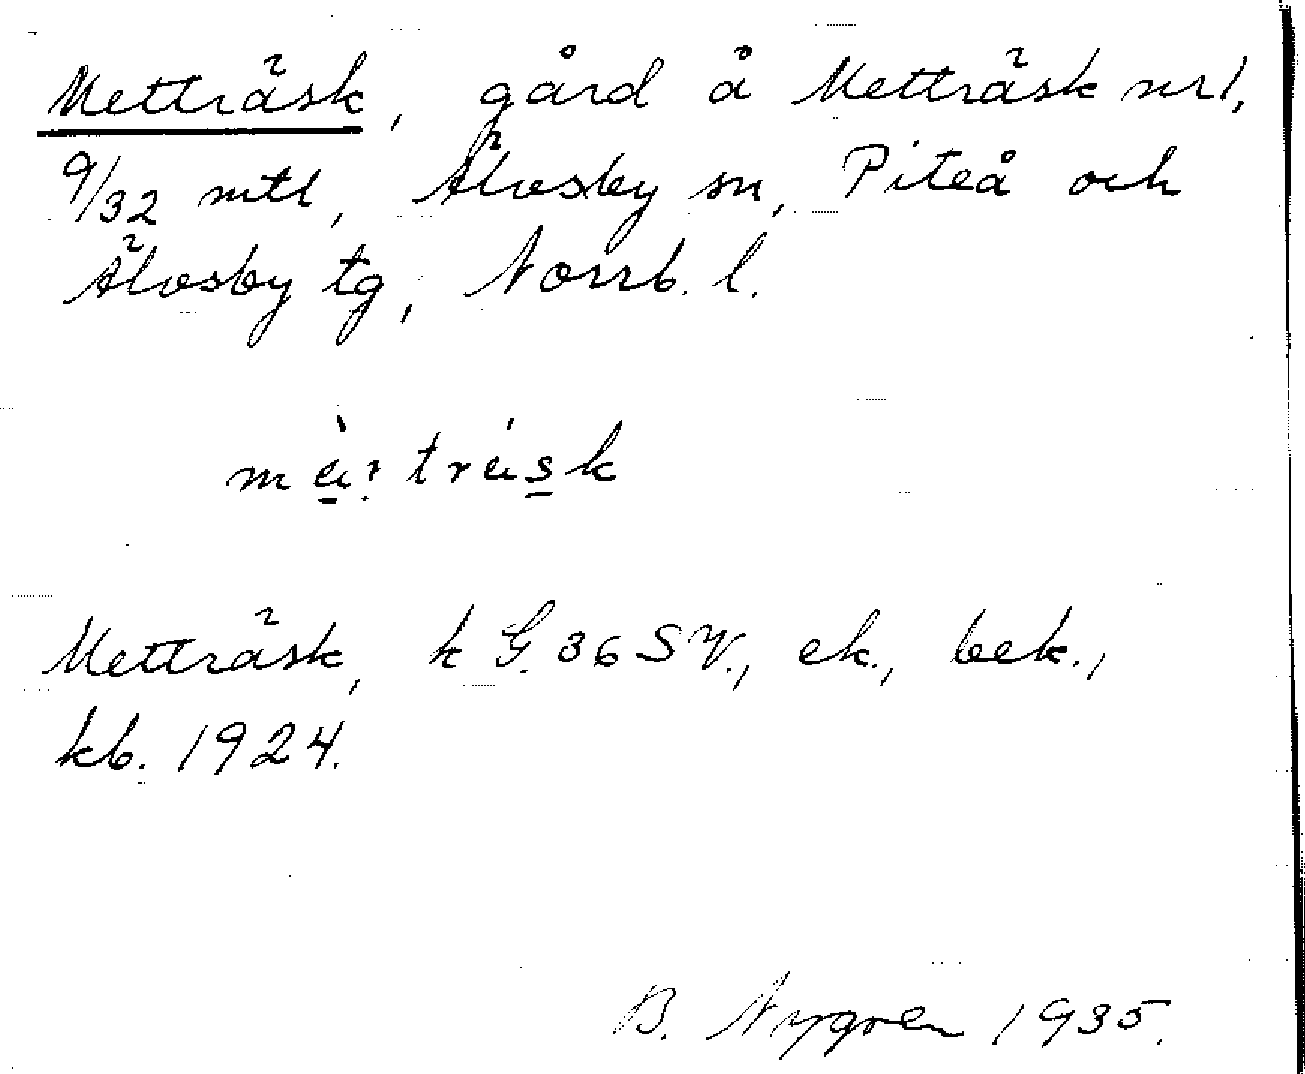 Metträsk, gård å Metträsk nr 1,
9/32 mtl, Älvsby sn, Piteå och
Älvsby tg, Norrb. l.
Metträsk, k G. 36 SV., ek., bek.,
kb. 1924.
B. Nygren 1935.